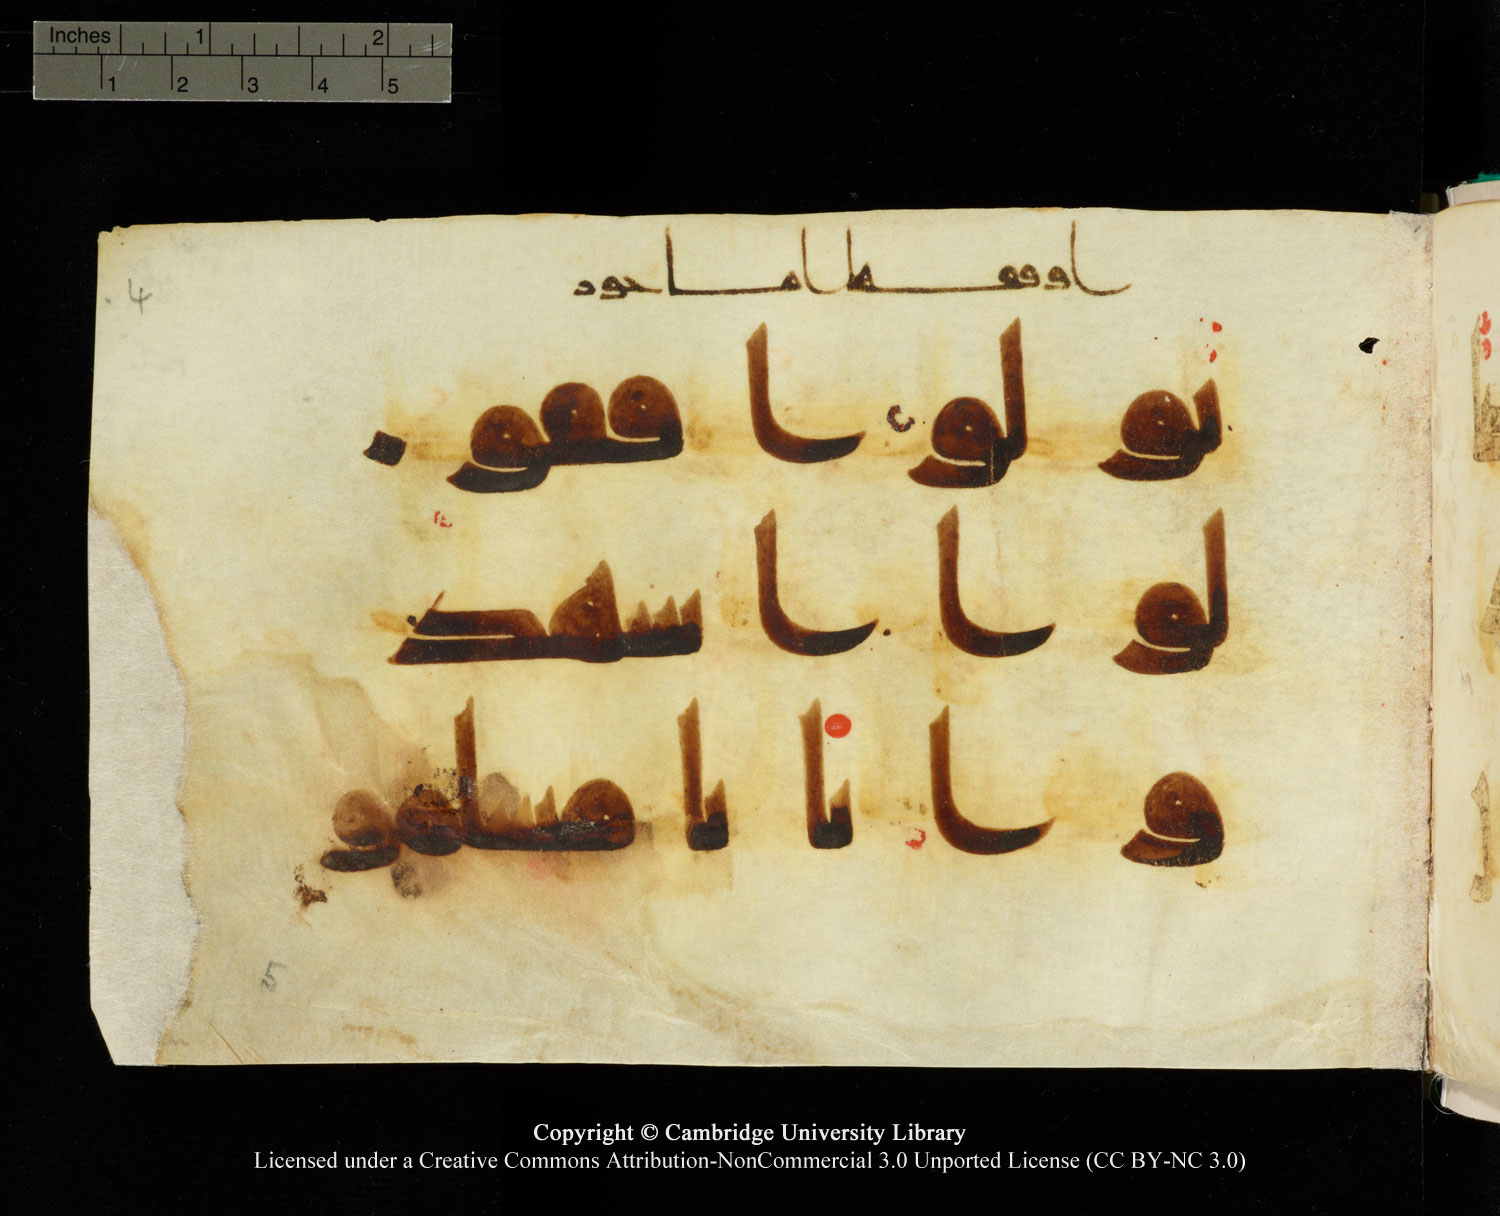 Inches 1 2
1 2 3 4 5
4
تولوا فقو
لوا اشهد
وا بانا مسلمو
5
Copyright © Cambridge University Library
Licensed under a Creative Commons Attribution-NonCommercial 3.0 Unported License (CC BY-NC 3.0)